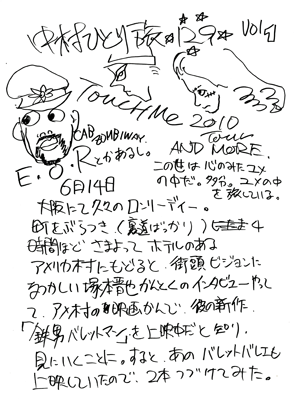 中村ひとり旅 ☆129☆ vol 1
TOUCH Me 2010
Tour
CAB
ZOMBIWAY.
AND MORE.
E.O.Rとかあるし。
この世は心のみたユメ
の中だ。多分。ユメの中
を旅している。
6月14日
大阪にて久々のロンリーデイー。
町をぶらつき(裏道ばっかり) 4
時間ほど さまよって ホテルのある
アメリカ村にもどると、街頭ビジョンに
なつかしい塚本晋也かんとくのインタビューやって
て、アメ村の映画かんで、彼の新作
「鉄男 バレットマン」を上映中だと知り、
見にいくことに。すると、あの バレットバレエも
上映していたので、2本つづけてみた。